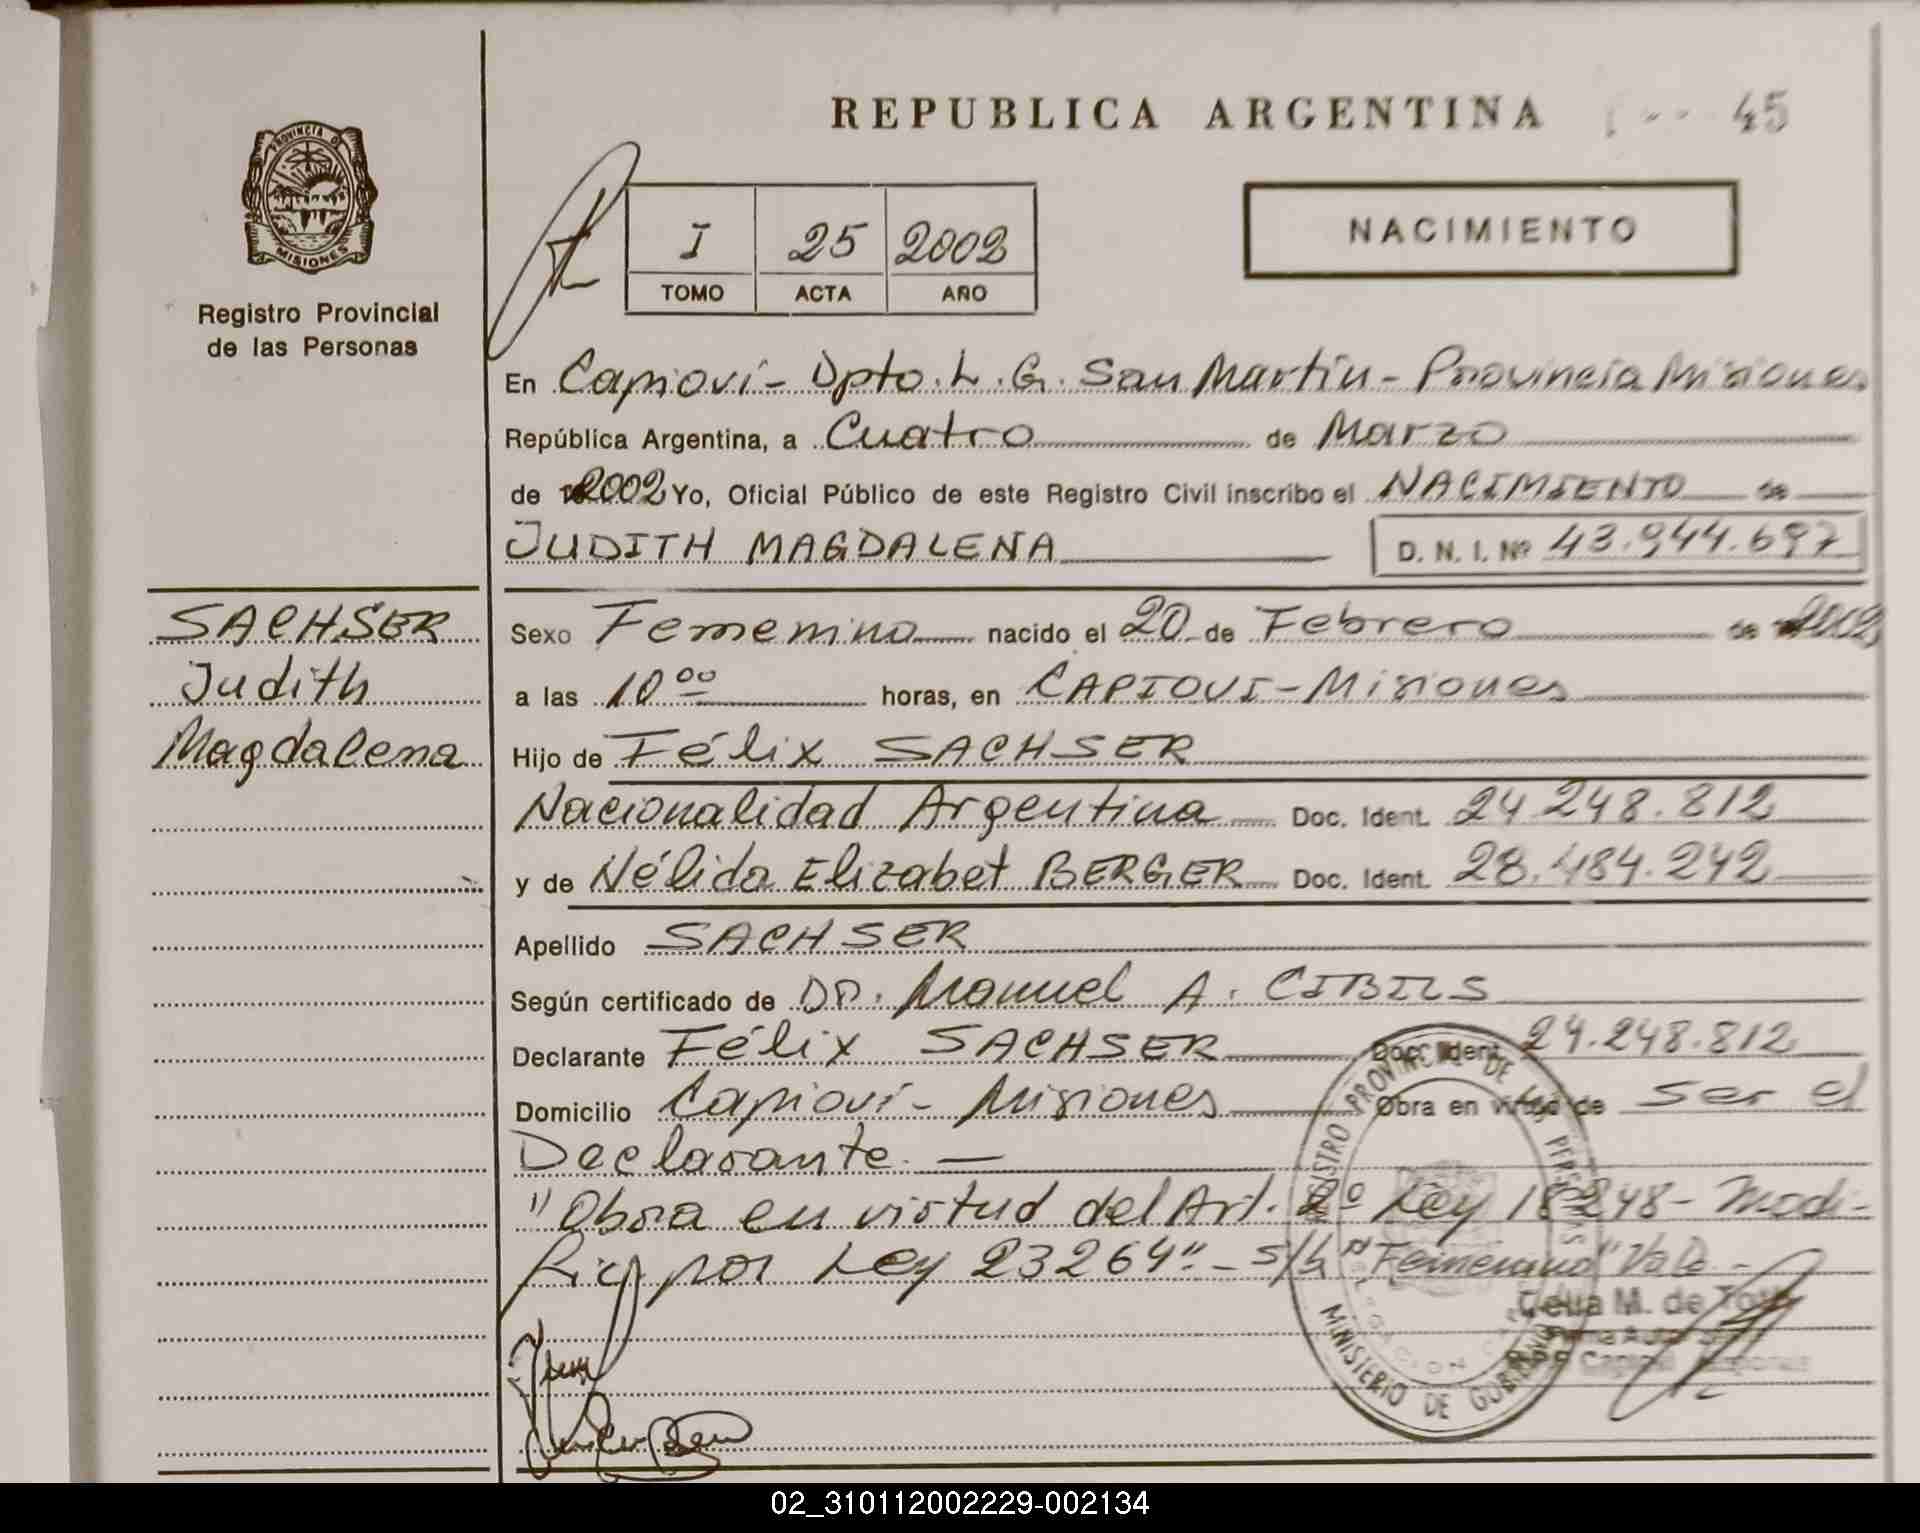 REPUBLICA ARGENTINA 45
PROVINCIA D
MISIONES
Registro Provincial
de las Personas
I 25 2002
TOMO ACTA AÑO
NACIMIENTO
En Capioví - Dpto. L. G. San Martín - Provincia Misiones
República Argentina, a Cuatro de Marzo
de 2002 Yo, Oficial Público de este Registro Civil inscribo el NACIMIENTO de
JUDITH MAGDALENA D. N. I. Nº 43.944.697
SACHSER
Judith
Magdalena
Sexo Femenino nacido el 20 de Febrero de 2002
a las 10 00 horas, en CAPIOVI - Misiones
Hijo de Félix SACHSER
Nacionalidad Argentina Doc. Ident. 24 248.812
y de Nélida Elizabet BERGER Doc. Ident. 28.484.242
Apellido SACHSER
Según certificado de Dr. Manuel A. CIBILS
Declarante Félix SACHSER Doc. Ident. 24.248.812
Domicilio Capioví - Misiones Obra en virtud de ser el
Declarante. —
"Obra en virtud del Art. 2º Ley 18248 - Modi-
fic. por Ley 23264". - S/L "Femenino" Vale -
REGISTRO PROVINCIAL DE LAS PERSONAS
MINISTERIO DE GOBIERNO
Celia M. de Toth
02_310112002229-002134